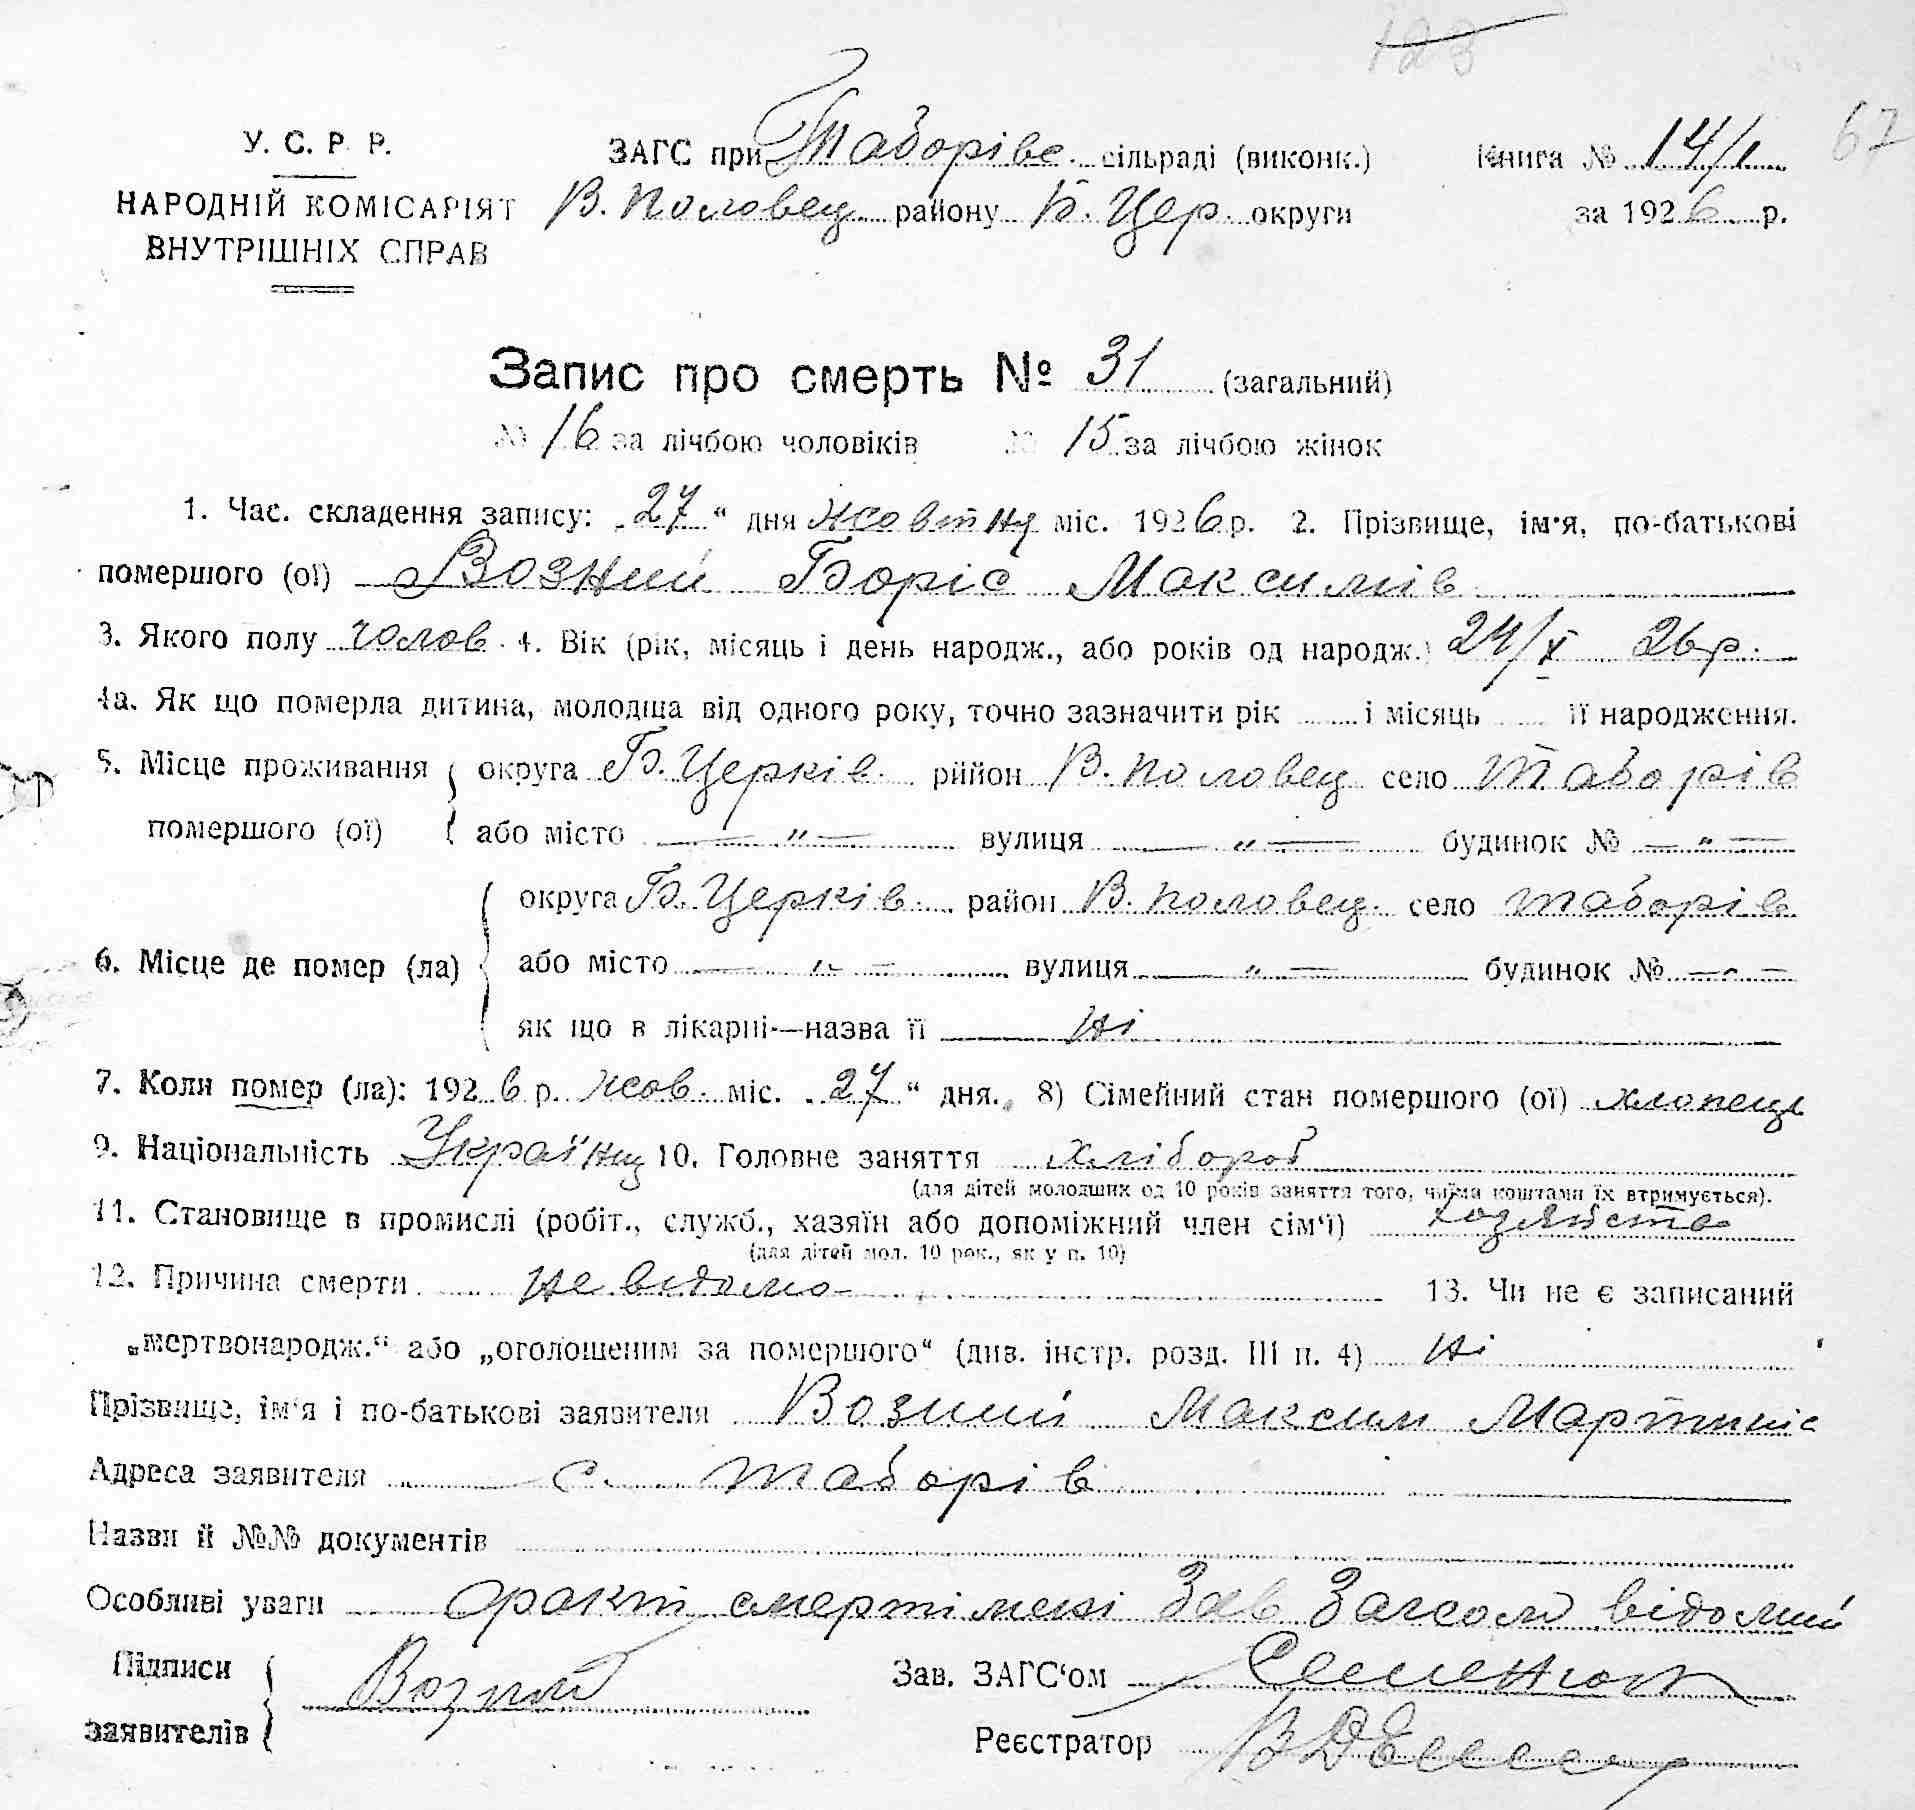 123
У. С. Р. Р. ЗАГС при Таборівс. сільраді (виконк.) Книга № 14/1 67
НАРОДНІЙ КОМІСАРІЯТ В. Половец району Б. Цер. округи за 1926 р.
ВНУТРІШНІХ СПРАВ
Запис про смерть № 31 (загальний)
№ 16 за лічбою чоловіків № 15 за лічбою жінок
1. Час. складення запису: „27“ дня жовтня міс. 1926 р. 2. Прізвище, ім'я, по-батькові
помершого (ої) Возний Боріс Максимів
3. Якого полу чолов. 4. Вік (рік, місяць і день народж., або років од народж.) 24/X 26 р.
4а. Як що померла дитина, молодша від одного року, точно зазначити рік і місяць її народження.
5. Місце проживання округа Б. Церків. рийон В. Половец село Таборів
помершого (ої) або місто — „ — вулиця — „ — будинок № — „ —
округа Б. Церків. район В. Половец. село Таборів
6. Місце де помер (ла) або місто — „ — вулиця — „ — будинок № — „ —
як що в лікарні—назва її ні
7. Коли помер (ла): 1926 р. жов. міс. „27“ дня. 8) Сімейний стан помершого (ої) хлопець
9. Національність Українц 10. Головне заняття хлібороб
(для дітей молодших од 10 років заняття того, чиїми коштами їх втримується).
11. Становище в промислі (робіт., служб., хазяїн або допоміжний член сім'ї) хозяйство
(для дітей мол. 10 рок., як у п. 10)
12. Причина смерти не відомо 13. Чи не є записаний
„мертвонародж.“ або „оголошеним за помершого“ (див. інстр. розд. III п. 4) ні
Прізвище, ім'я і по-батькові заявителя Возний Максим Мартиніс
Адреса заявителя с. Таборів
Назви й №№ документів
Особливі уваги факт смерті мені Зав Загсом відомий
Підписи Возний Зав. ЗАГС'ом Семенюк
заявителів Реєстратор